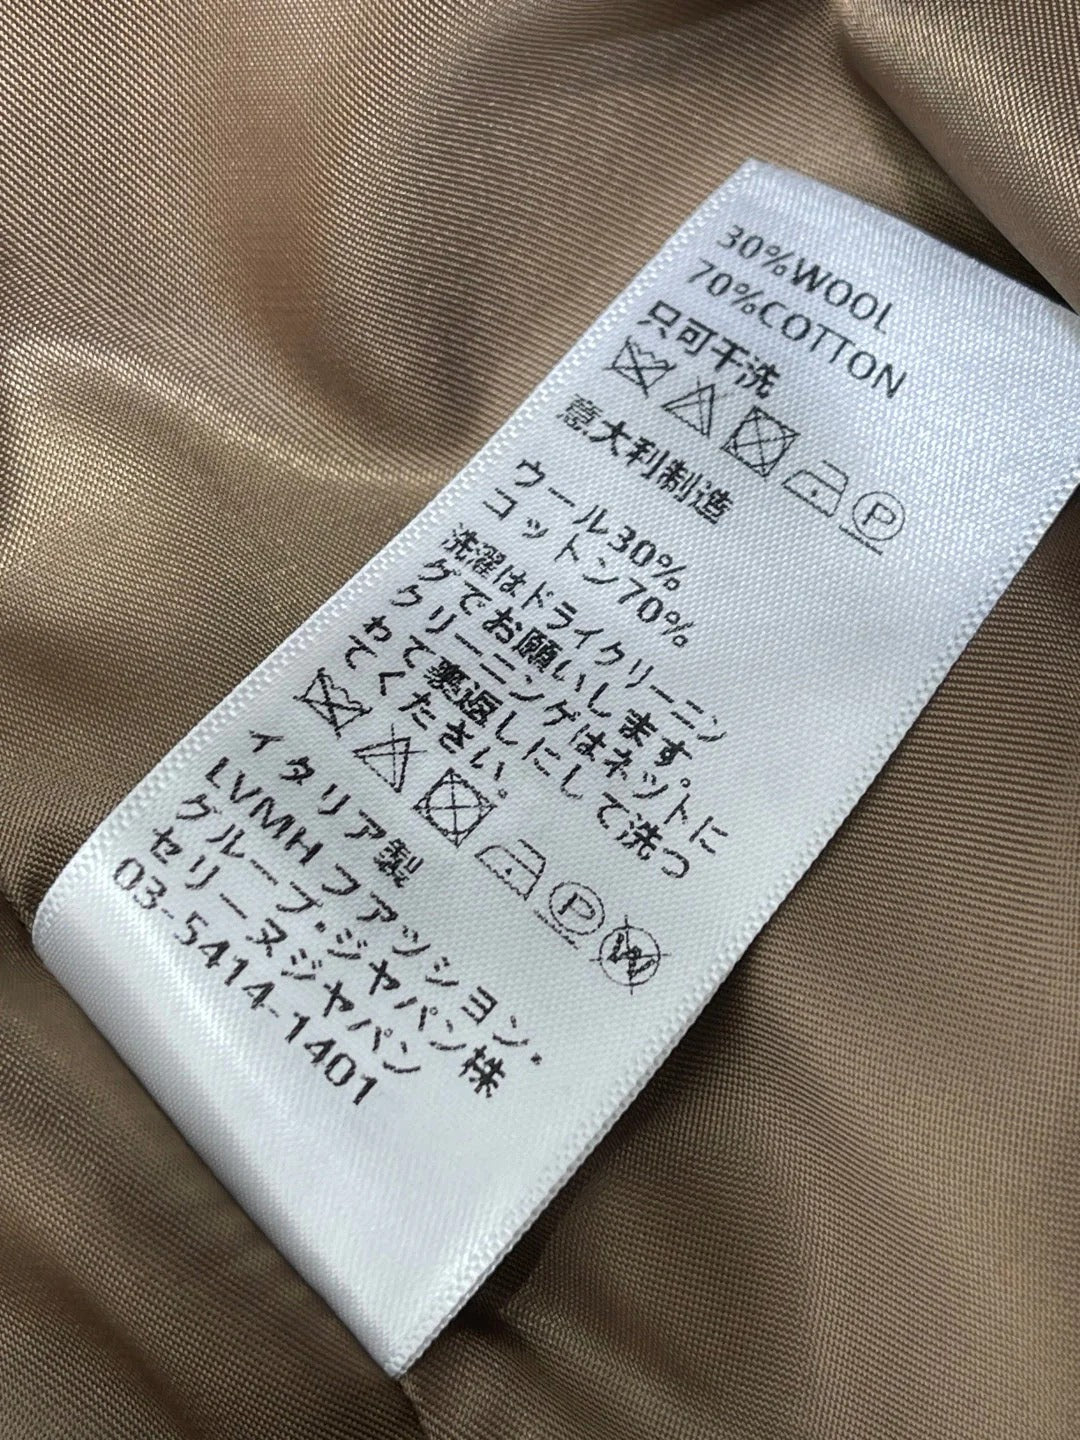 30%WOOL
70%COTTON
只可干洗
P
意大利制造
ウール30%
コットン70%
洗濯はドライクリーニン
グでお願いします
クリーニングはネットに
わて裏返しにして洗っ
てください。
P W
イタリア製
LVMH ファッション・
グループ・ジャパン株
セリーヌジャパン
03-5414-1401